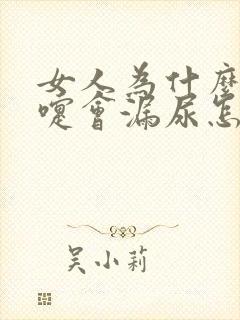 女人為什麼
嚏會漏尿怎
吴小莉